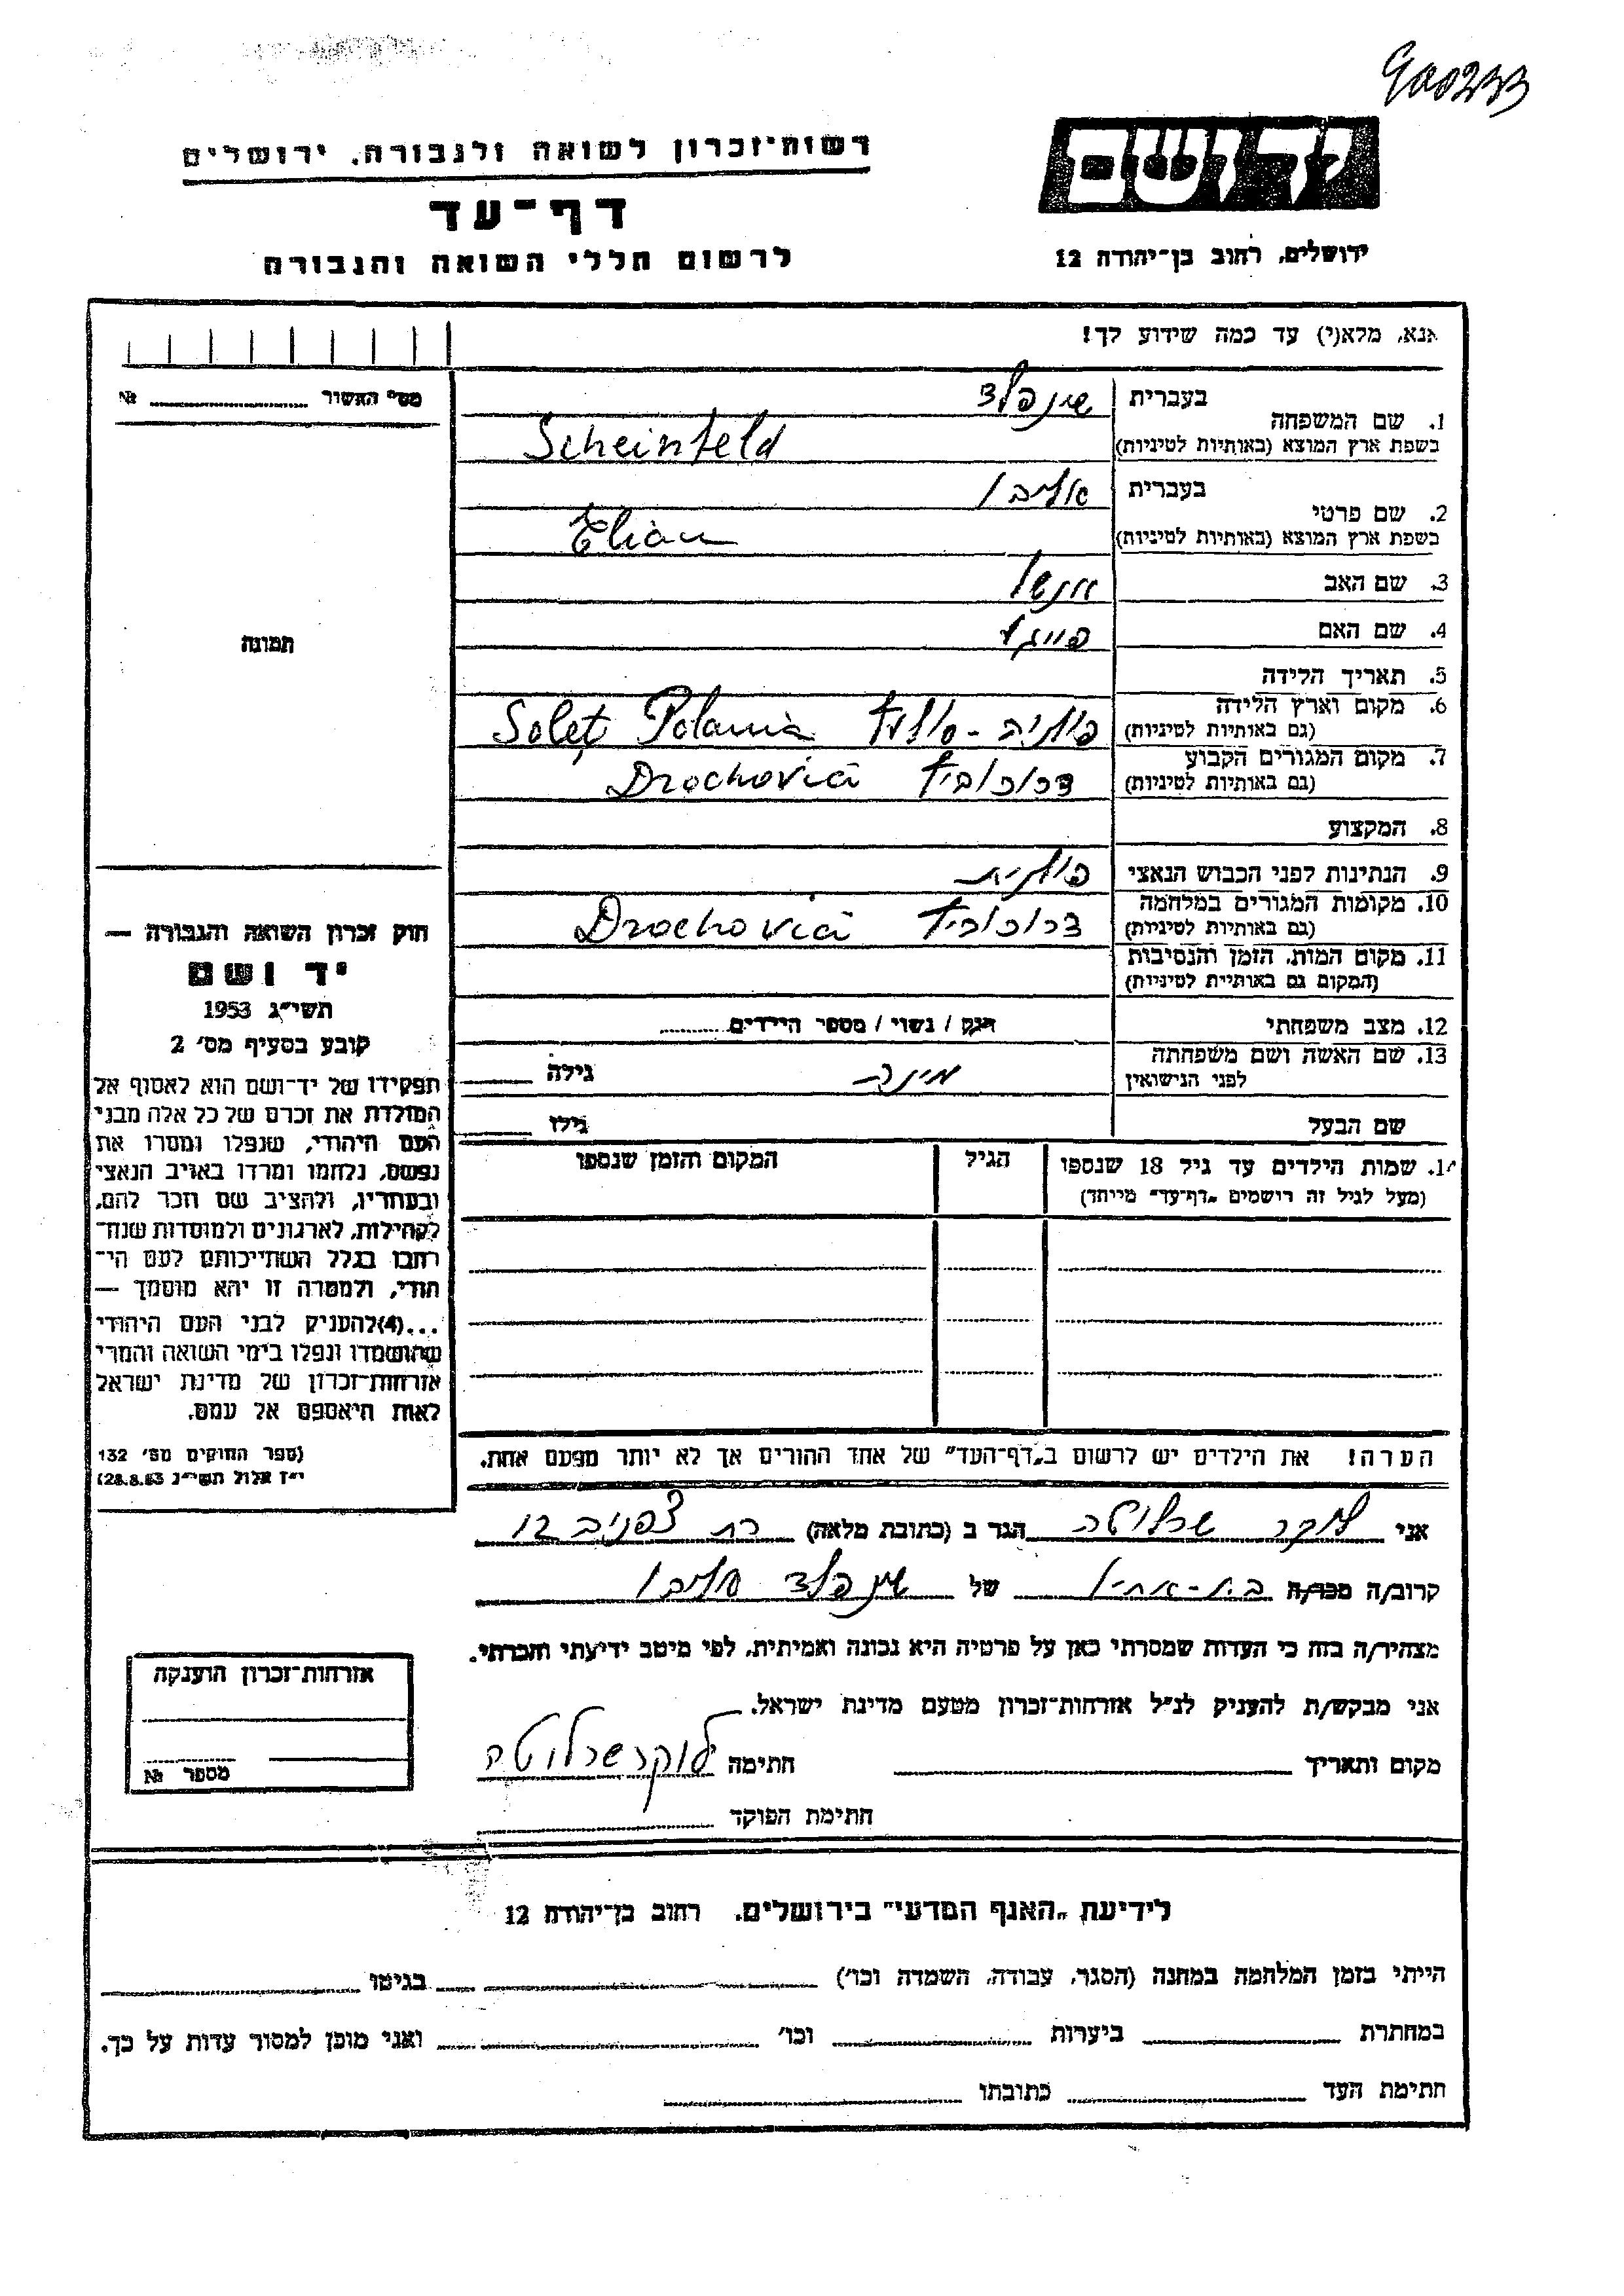 900233
רשות־זכרון לשואה ולגבורה, ירושלים
דף־עד
לרשום חללי השואה והגבורה
יד ושם
ירושלים, רחוב בן־יהודה 12
אנא, מלא(י) עד כמה שידוע לך!
מס' האשור № 
תמונה
חוק זכרון השואה והגבורה —
יד ושם
תשי"ג 1953
קובע בסעיף מס' 2
תפקידו של יד־ושם הוא לאסוף אל
המולדת את זכרם של כל אלה מבני
העם היהודי, שנפלו ומסרו את
נפשם, נלחמו ומרדו באויב הנאצי
ובעוזריו, ולהציב שם וזכר להם,
לקהילות, לארגונים ולמוסדות שנח־
רבו בגלל השתייכותם לעם הי־
הודי, ולמטרה זו יהא מוסמך —
...(4)להעניק לבני העם היהודי
שהושמדו ונפלו בימי השואה והמרי
אזרחות־זכרון של מדינת ישראל
לאות היאספם אל עמם.
(ספר החוקים מס' 132
י"ז אלול תשי"ג 28.8.53)
1. שם המשפחה
בעברית שינפלד
בשפת ארץ המוצא (באותיות לטיניות) Scheinfeld
2. שם פרטי
בעברית
בשפת ארץ המוצא (באותיות לטיניות)
3. שם האב אנשל
4. שם האם פייגה
5. תאריך הלידה
6. מקום וארץ הלידה
(גם באותיות לטיניות) פולניה - Polania
7. מקום המגורים הקבוע
(גם באותיות לטיניות) דרוכוביץ Drochovici
8. המקצוע
9. הנתינות לפני הכבוש הנאצי פולנית
10. מקומות המגורים במלחמה
(גם באותיות לטיניות) דרוכוביץ Drochovici
11. מקום המות, הזמן והנסיבות
(המקום גם באותיות לטיניות)
12. מצב משפחתי רווק / נשוי / מספר הילדים
13. שם האשה ושם משפחתה
לפני הנישואין מינה גילה
שם הבעל גילו
14. שמות הילדים עד גיל 18 שנספו הגיל המקום והזמן שנספו
(מעל לגיל זה רושמים "דף־עד" מייחד)
הערה! את הילדים יש לרשום ב"דף־העד" של אחד ההורים אך לא יותר מפעם אחת.
אני לוקר שרלוטה הגר ב (כתובת מלאה) 12
קרוב/ה מכר/ה בת-אחין של שינפלד
מצהיר/ה בזה כי העדות שמסרתי כאן על פרטיה היא נכונה ואמיתית, לפי מיטב ידיעתי והכרתי.
אני מבקש/ת להעניק לנ"ל אזרחות־זכרון מטעם מדינת ישראל.
מקום ותאריך חתימה לוקר שרלוטה
חתימת הפוקד
אזרחות־זכרון הוענקה
מספר №
לידיעת "האגף המדעי" בירושלים, רחוב בן־יהודה 12
הייתי בזמן המלחמה במחנה (הסגר, עבודה, השמדה וכו') בגיטו
במחתרת ביערות וכו' ואני מוכן למסור עדות על כך.
חתימת העד כתובתו